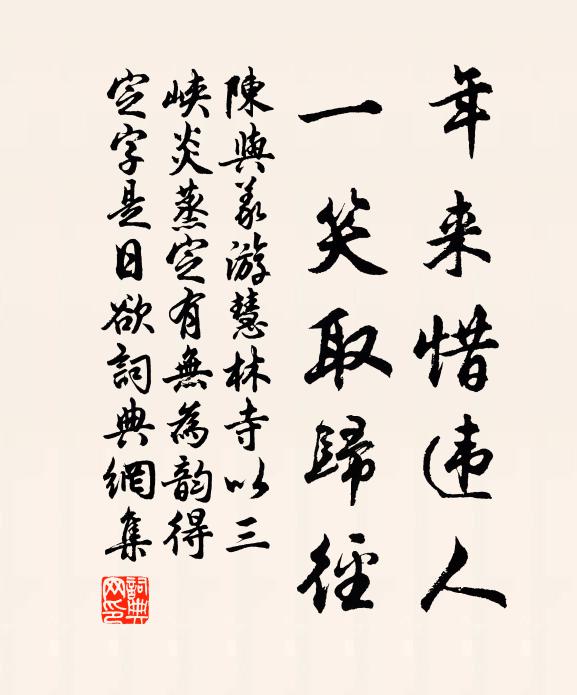 年来惜违人
一笑取歸徑
陳與義游慧林寺以三
峡炎蒸定有無為韵得
定字是日欲詞典網集
詞典
网印